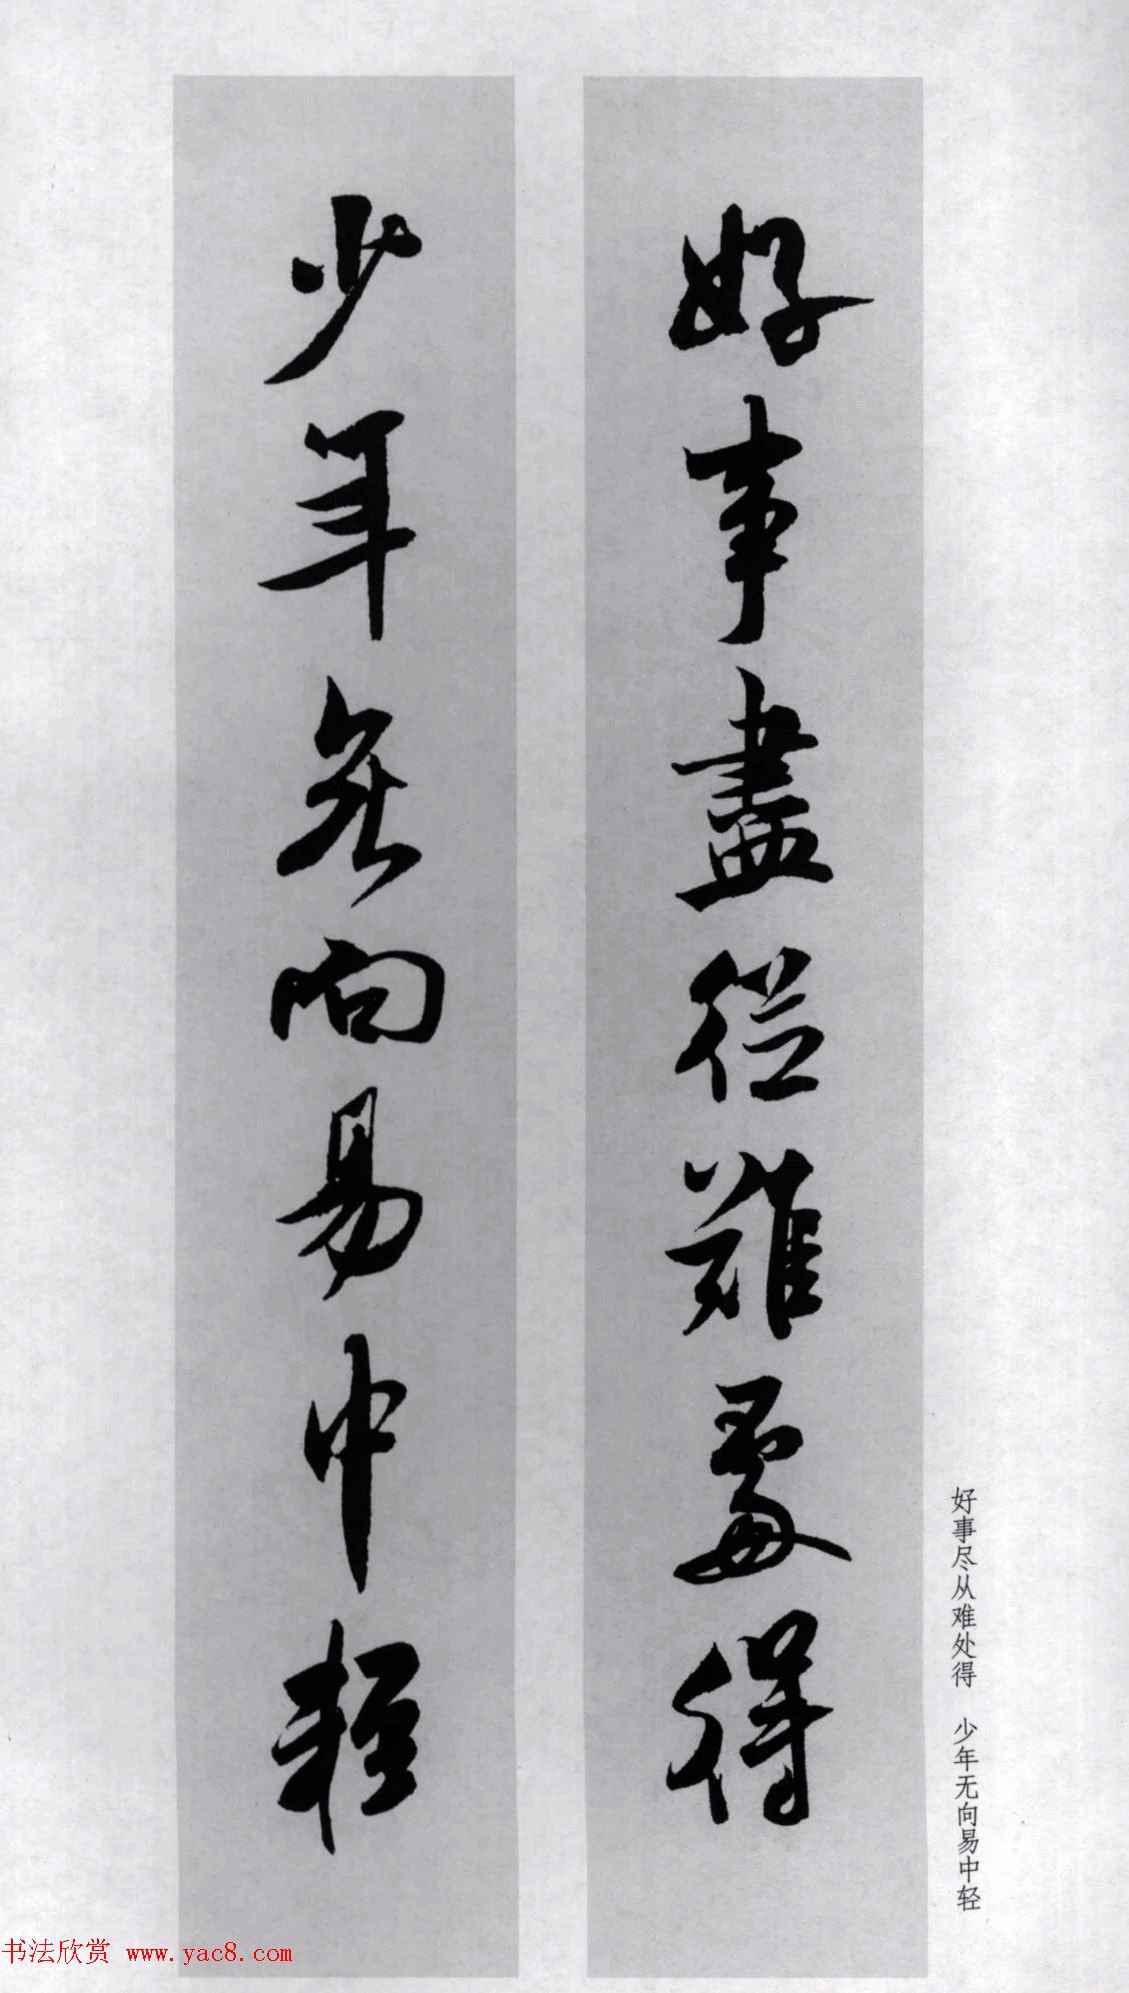 好事盡從難處得
少年無向易中輕
好事尽从难处得 少年无向易中轻
书法欣赏 www.yac8.com